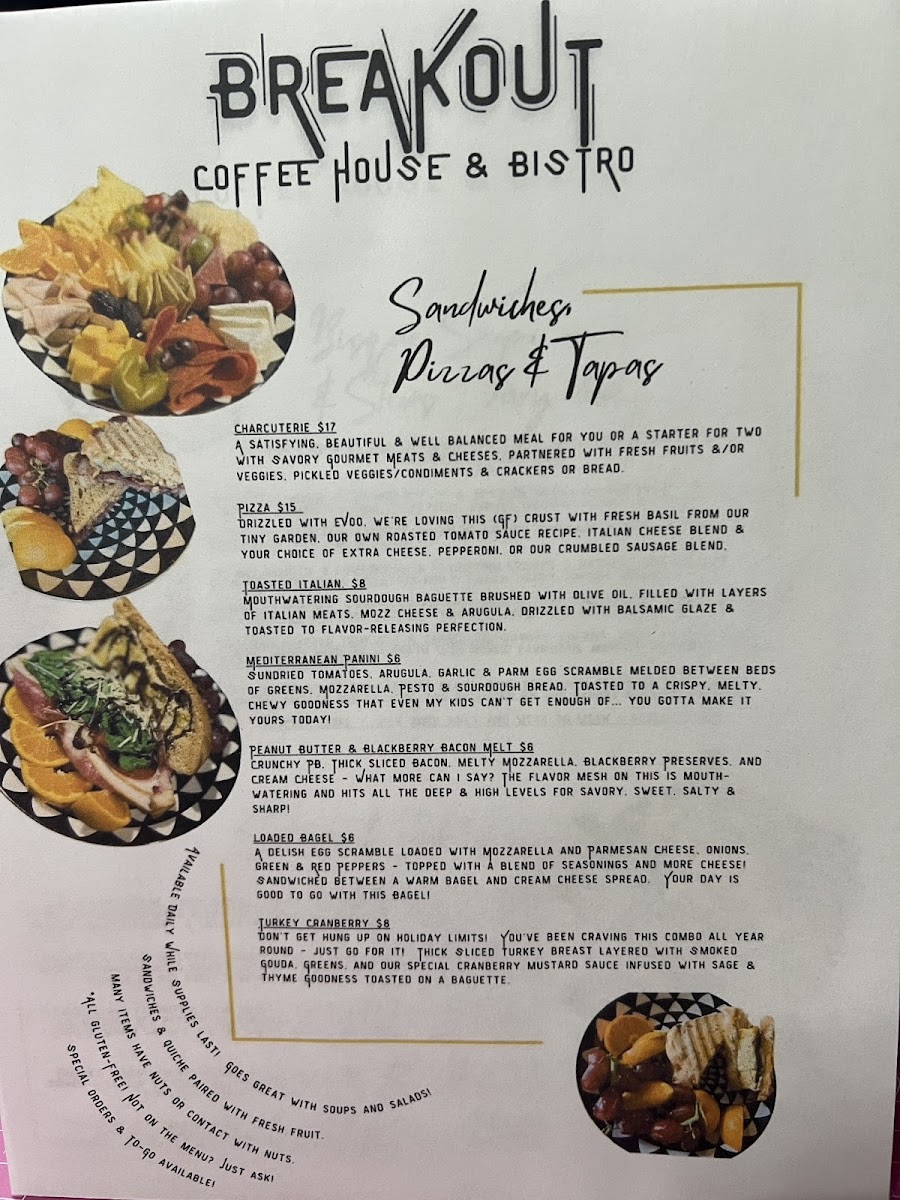 BREAKOUT
COFFEE HOUSE & BISTRO
Sandwiches,
Pizzas & Tapas
CHARCUTERIE $17
A SATISFYING, BEAUTIFUL & WELL BALANCED MEAL FOR YOU OR A STARTER FOR TWO
WITH SAVORY GOURMET MEATS & CHEESES, PARTNERED WITH FRESH FRUITS &/OR
VEGGIES, PICKLED VEGGIES/CONDIMENTS & CRACKERS OR BREAD.
PIZZA $15
DRIZZLED WITH EVOO, WE'RE LOVING THIS (GF) CRUST WITH FRESH BASIL FROM OUR
TINY GARDEN, OUR OWN ROASTED TOMATO SAUCE RECIPE, ITALIAN CHEESE BLEND &
YOUR CHOICE OF EXTRA CHEESE, PEPPERONI, OR OUR CRUMBLED SAUSAGE BLEND,
TOASTED ITALIAN, $8
MOUTHWATERING SOURDOUGH BAGUETTE BRUSHED WITH OLIVE OIL, FILLED WITH LAYERS
OF ITALIAN MEATS, MOZZ CHEESE & ARUGULA, DRIZZLED WITH BALSAMIC GLAZE &
TOASTED TO FLAVOR-RELEASING PERFECTION.
MEDITERRANEAN PANINI $6
SUNDRIED TOMATOES, ARUGULA, GARLIC & PARM EGG SCRAMBLE MELDED BETWEEN BEDS
OF GREENS, MOZZARELLA, PESTO & SOURDOUGH BREAD. TOASTED TO A CRISPY, MELTY,
CHEWY GOODNESS THAT EVEN MY KIDS CAN'T GET ENOUGH OF... YOU GOTTA MAKE IT
YOURS TODAY!
PEANUT BUTTER & BLACKBERRY BACON MELT $6
CRUNCHY PB, THICK SLICED BACON, MELTY MOZZARELLA, BLACKBERRY PRESERVES, AND
CREAM CHEESE - WHAT MORE CAN I SAY? THE FLAVOR MESH ON THIS IS MOUTH-
WATERING AND HITS ALL THE DEEP & HIGH LEVELS FOR SAVORY, SWEET, SALTY &
SHARP!
LOADED BAGEL $6
A DELISH EGG SCRAMBLE LOADED WITH MOZZARELLA AND PARMESAN CHEESE, ONIONS,
GREEN & RED PEPPERS - TOPPED WITH A BLEND OF SEASONINGS AND MORE CHEESE!
SANDWICHED BETWEEN A WARM BAGEL AND CREAM CHEESE SPREAD. YOUR DAY IS
GOOD TO GO WITH THIS BAGEL!
TURKEY CRANBERRY $8
DON'T GET HUNG UP ON HOLIDAY LIMITS! YOU'VE BEEN CRAVING THIS COMBO ALL YEAR
ROUND - JUST GO FOR IT! THICK SLICED TURKEY BREAST LAYERED WITH SMOKED
GOUDA, GREENS, AND OUR SPECIAL CRANBERRY MUSTARD SAUCE INFUSED WITH SAGE &
THYME GOODNESS TOASTED ON A BAGUETTE.
AVAILABLE DAILY WHILE SUPPLIES LAST! GOES GREAT WITH SOUPS AND SALADS!
SANDWICHES & QUICHE PAIRED WITH FRESH FRUIT.
MANY ITEMS HAVE NUTS OR CONTACT WITH NUTS.
*ALL GLUTEN-FREE! NOT ON THE MENU? JUST ASK!
SPECIAL ORDERS & TO-GO AVAILABLE!